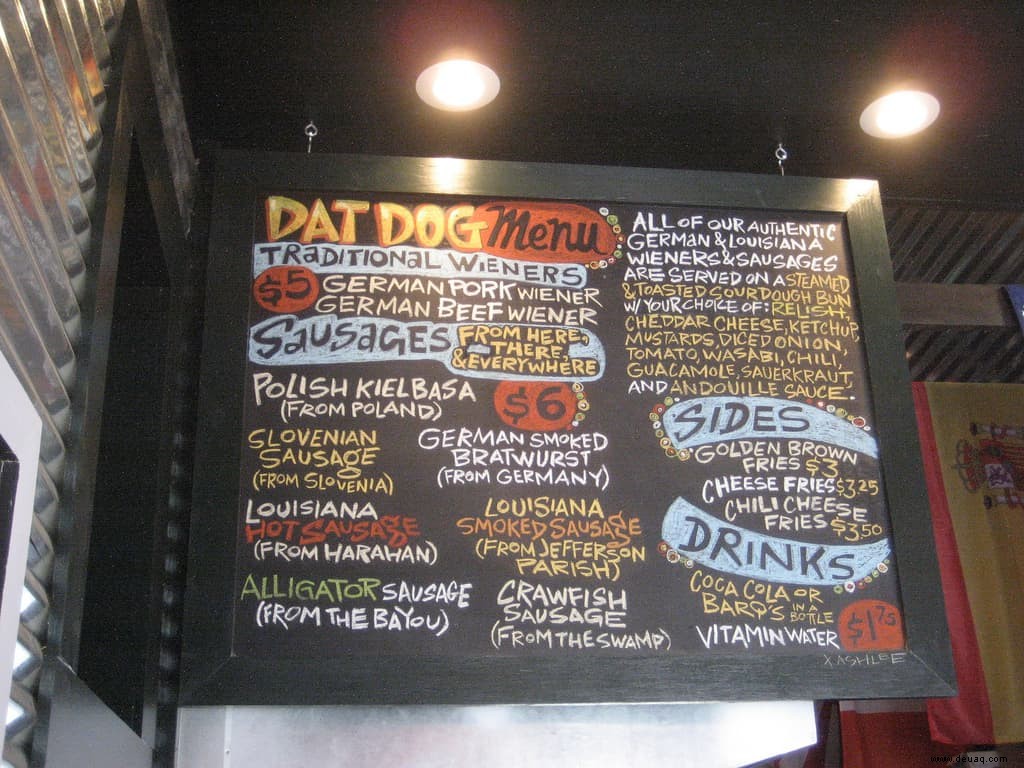 DAT DOG Menu
TRADITIONAL WIENERS
$5 GERMAN PORK WIENER
GERMAN BEEF WIENER
SAUSAGES FROM HERE,
THERE,
& EVERYWHERE
POLISH KIELBASA
(FROM POLAND)
$6
SLOVENIAN
SAUSAGE
(FROM SLOVENIA)
GERMAN SMOKED
BRATWURST
(FROM GERMANY)
LOUISIANA
HOT SAUSAGE
(FROM HARAHAN)
LOUISIANA
SMOKED SAUSAGE
(FROM JEFFERSON
PARISH)
ALLIGATOR SAUSAGE
(FROM THE BAYOU)
CRAWFISH
SAUSAGE
(FROM THE SWAMP)
ALL OF OUR AUTHENTIC
GERMAN & LOUISIANA
WIENERS & SAUSAGES
ARE SERVED ON A STEAMED
& TOASTED SOURDOUGH BUN
W/ YOUR CHOICE OF: RELISH,
CHEDDAR CHEESE, KETCHUP,
MUSTARDS, DICED ONION,
TOMATO, WASABI, CHILI,
GUACAMOLE, SAUERKRAUT,
AND ANDOUILLE SAUCE.
SIDES
GOLDEN BROWN
FRIES $3
CHEESE FRIES $3.25
CHILI CHEESE
FRIES $3.50
DRINKS
COCA COLA OR
BARQ'S IN A BOTTLE
VITAMIN WATER $1.75
X ASHLEE
www.deuaq.com